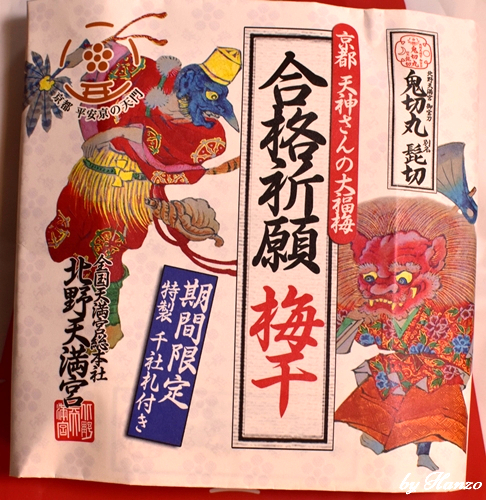 北野天満宮 御宝刀
鬼切丸 別名 髭切
京都 天神さんの大福梅
合格祈願 梅干
京都 平安京の天門
期間限定
特製 千社札付き
全国天満宮総本社
北野天満宮
by Hanzo